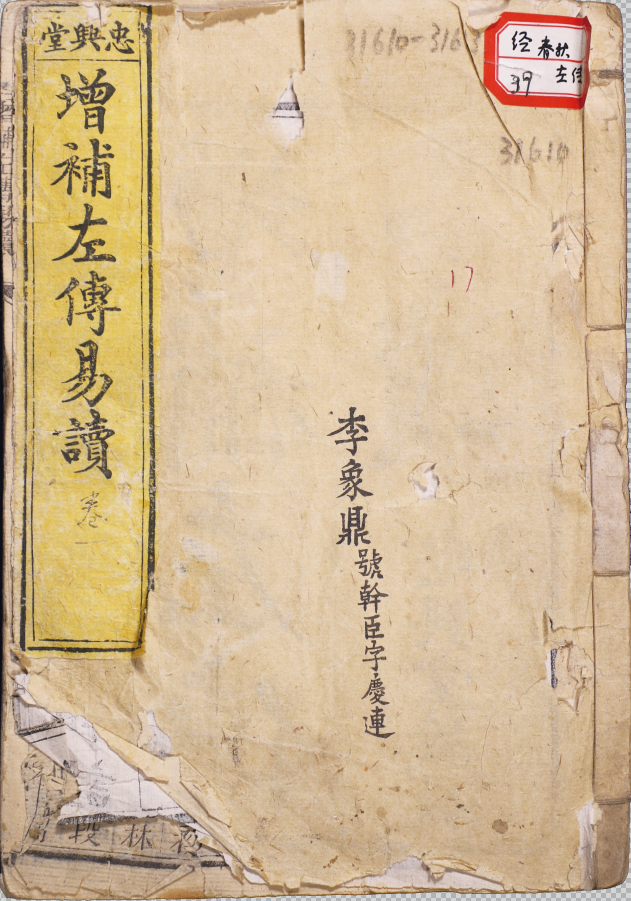 忠興堂
增補左傳易讀
卷一
李象鼎號幹臣字慶連
经 春秋
左传
39
31610-316
31610
17
段 林